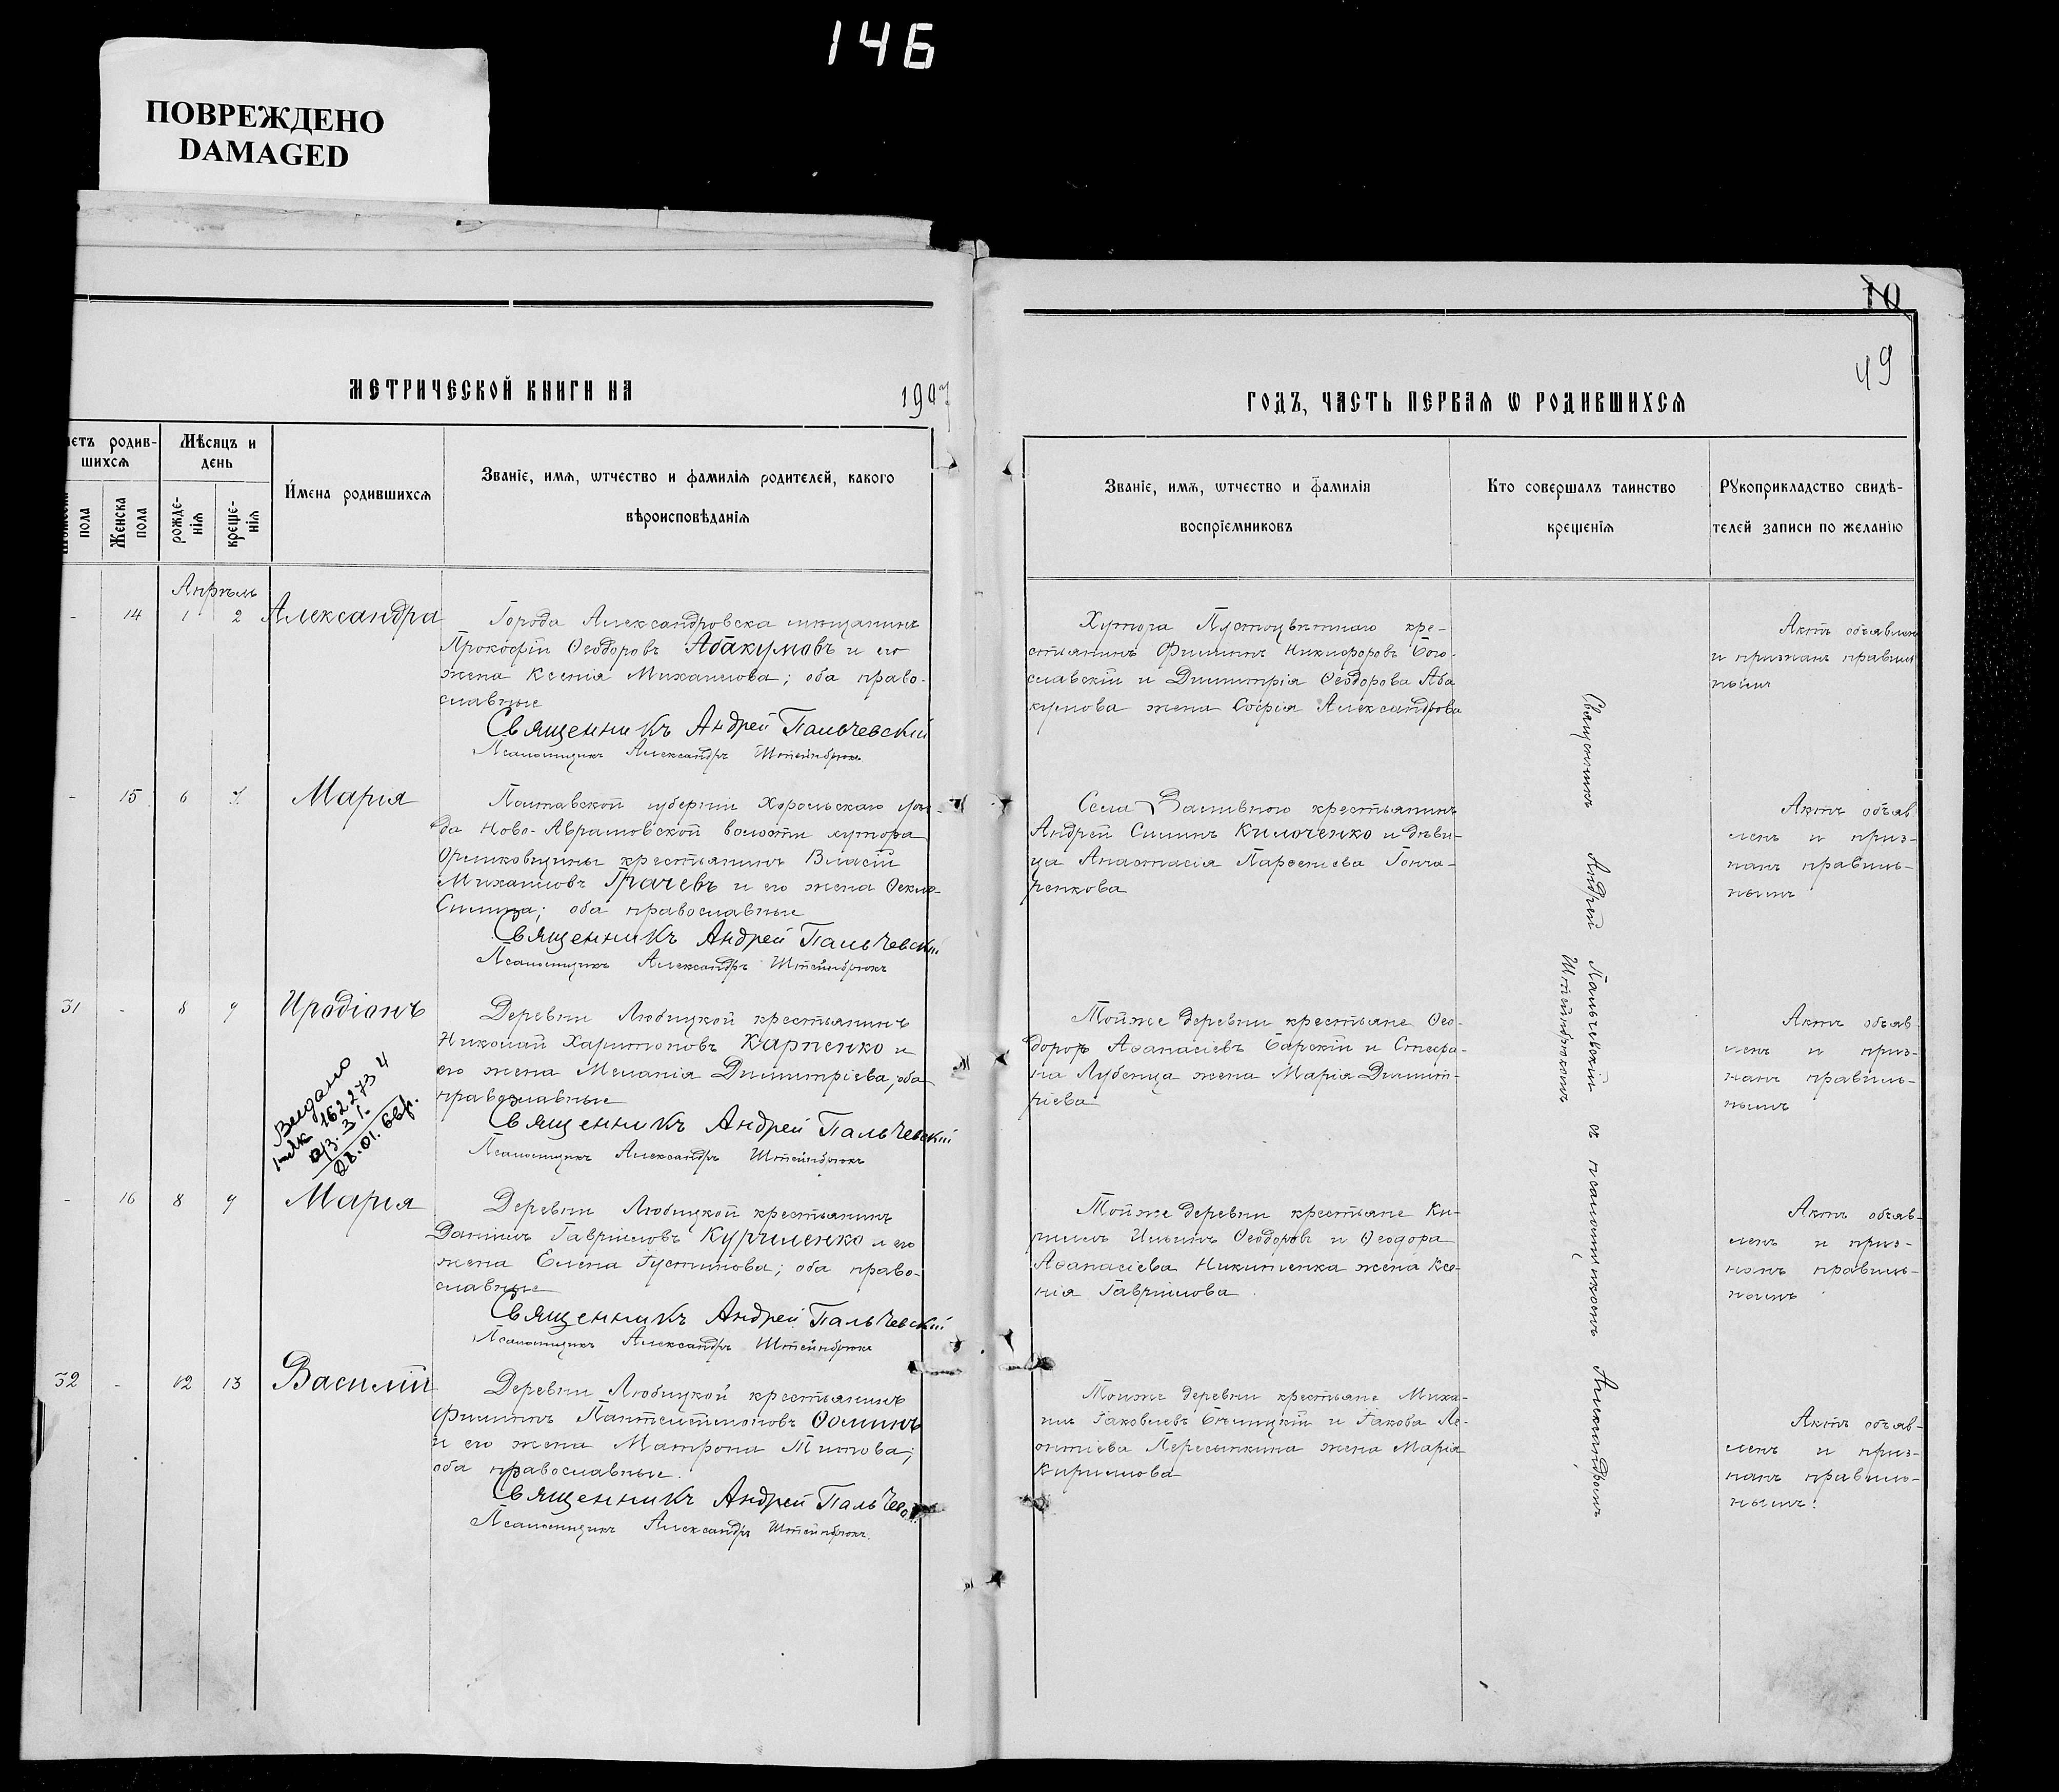 146
ПОВРЕЖДЕНО
DAMAGED
10
49
МЕТРИЧЕСКОЙ КНИГИ НА 1907
ГОДЪ, ЧАСТЬ ПЕРВАЯ Ѡ РОДИВШИХСѦ
етъ родив-
шихсѧ
пола
Женска
пола
Мѣсяцъ и
день
рожде-
нїѧ
креще-
нїѧ
Имена родившихсѧ
Званїе, имѧ, ѡтчество и фамилїѧ родителей, какого
вѣроисповѣданїѧ
Званїе, имѧ, ѡтчество и фамилїѧ
воспрїемниковъ
Кто совершалъ таинство
крещенїѧ
Рꙋкоприкладство свидѣ-
телей записи по желанїю
Апрѣль
- 14 1 2 Александра
Города Александровска мѣщанинъ
Прокофій Ѳеодоровъ Абакумовъ и его
жена Ксенія Михаилова; оба право-
славные
Священникъ Андрей Пальчевскій
Псаломщикъ Александръ Штейнбрюкъ
Хутора Пустоцвѣтнаго кре-
стьянинъ Филиппъ Никифоровъ Бого-
славскій и Димитрія Ѳеодорова Аба
кумова жена Софія Александрова
Актъ объявленъ
и признанъ правиль
нымъ
- 15 6 7 Марія
Полтавской губерніи Хорольскаго уѣз-
да Ново-Аврамовской волости хутора
крестьянинъ Власій
Михаиловъ Грачевъ и его жена Ѳекла
Силина; оба православные
Священникъ Андрей Пальчевскій
Псаломщикъ Александръ Штейнбрюкъ
Села Заливного крестьянинъ
Андрей Силинъ Килоченко и дѣви-
ца Анастасія Парфеніева Гонча-
ренкова
Актъ объяв
ленъ и приз-
нанъ правиль-
нымъ
31 - 8 9 Иродіонъ
Деревни Любицкой крестьянинъ
Николай Харитоновъ Карпенко и
его жена Меланія Димитріева; оба
православные
Священникъ Андрей Пальчевскій
Псаломщикъ Александръ Штейнбрюкъ
Выдано
162273 4
28.01.66г.
Тойже деревни крестьяне Ѳео-
доръ Аѳанасіевъ Барскій и Стефа-
на Лубенца жена Марія Димит-
ріева
Актъ объяв
ленъ и приз-
нанъ правиль-
нымъ
- 16 8 9 Марія
Деревни Любицкой крестьянинъ
Даніилъ Гавріиловъ Куриленко и его
жена Елена Іустинова; оба право-
славные
Священникъ Андрей Пальчевскій
Псаломщикъ Александръ Штейнбрюкъ
Тойже деревни крестьяне Ки-
риллъ Ильинъ Ѳеодоровъ и Ѳеодора
Аѳанасіева Никитенка жена Ксе-
нія Гавріилова
Актъ объяв-
ленъ и приз-
нанъ правиль-
нымъ
32 - 12 13 Василій
Деревни Любицкой крестьянинъ
Филиппъ Пантелеимоновъ Ѳоминъ
и его жена Матрона Титова;
оба православные.
Священникъ Андрей Пальчев
Псаломщикъ Александръ Штейнбрюкъ.
Тойже деревни крестьяне Миха-
илъ Іаковлевъ Бѣлицкій и Іакова Ле-
онтіева Пересыпкина жена Марія
Кириллова
Актъ объяв-
ленъ и приз-
нанъ правиль-
нымъ.
Священникъ Андрей Пальчевскій съ псаломщикомъ Александромъ
Штейнбрюкомъ